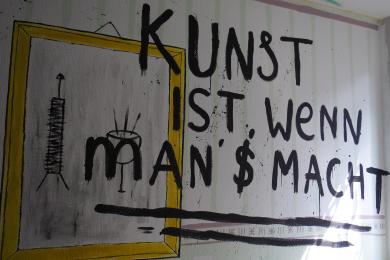 KUNST
IST, WENN
MAN'$ MACHT